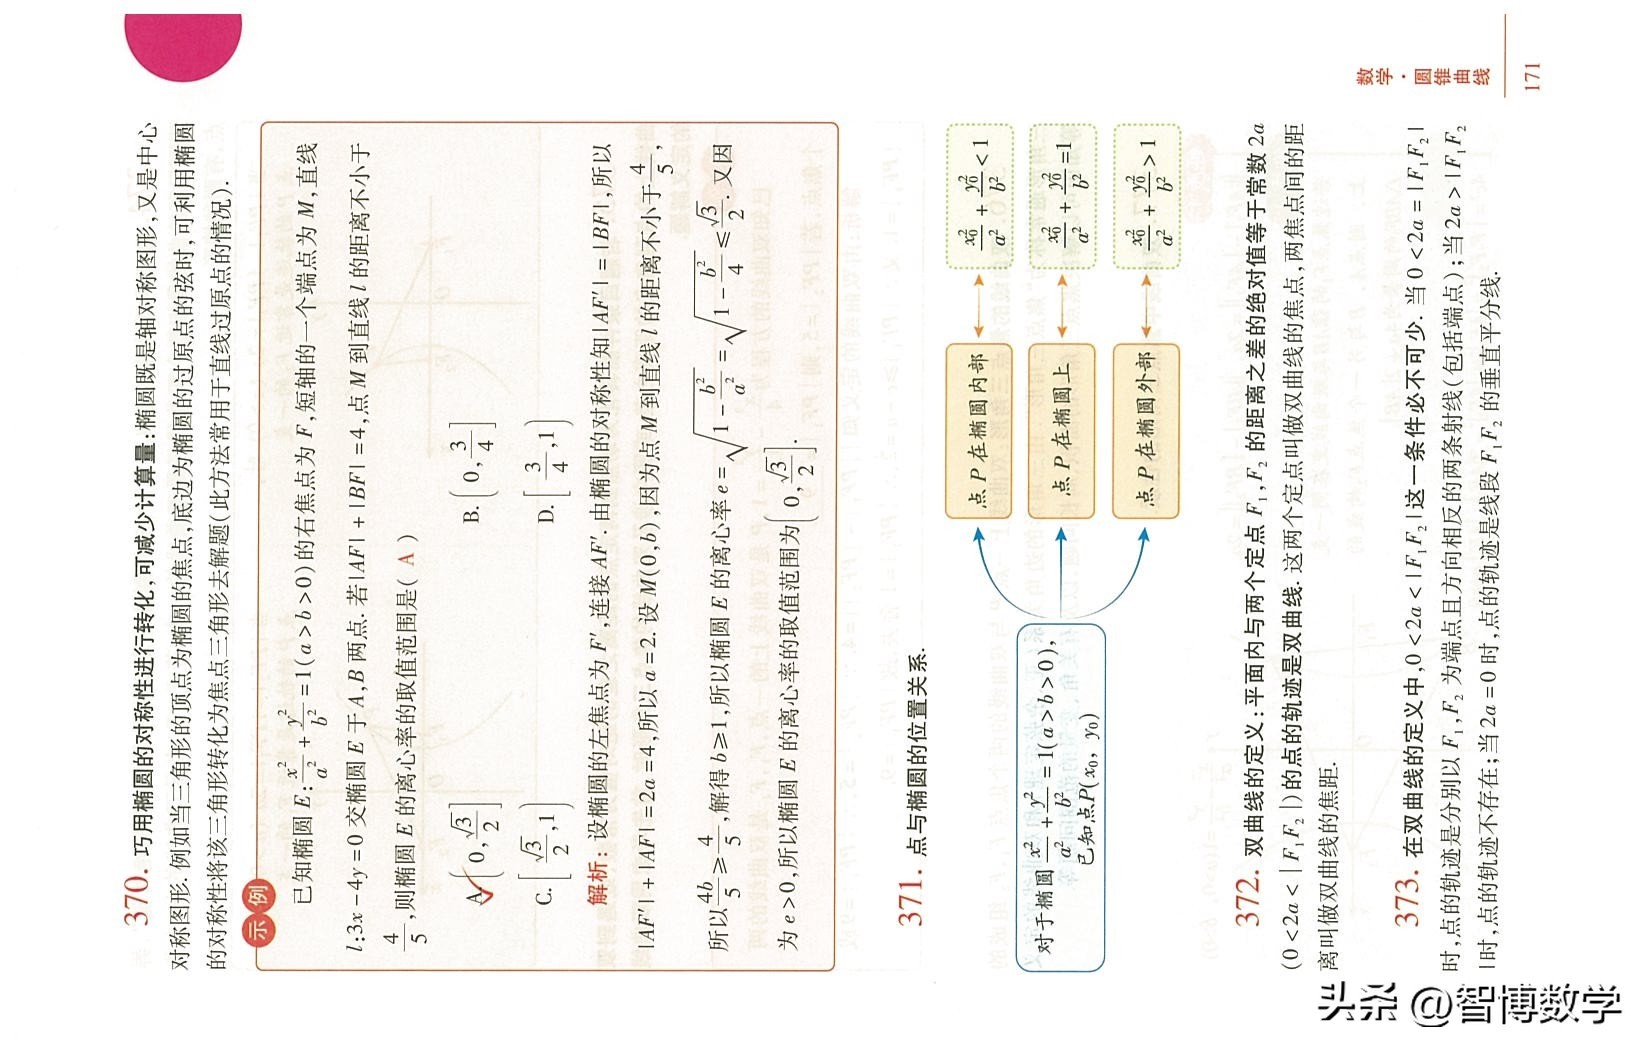 370. 巧用椭圆的对称性进行转化,可减少计算量:椭圆既是轴对称图形,又是中心
对称图形.例如当三角形的顶点为椭圆的焦点,底边为椭圆的过原点的弦时,可利用椭圆
的对称性将该三角形转化为焦点三角形去解题(此方法常用于直线过原点的情况).
示例
已知椭圆 E: x²/a² + y²/b² = 1(a>b>0)的右焦点为 F,短轴的一个端点为 M,直线
l:3x-4y=0 交椭圆 E 于 A,B 两点.若|AF|+|BF|=4,点 M 到直线 l 的距离不小于
4/5,则椭圆 E 的离心率的取值范围是( A )
A. (0, √3/2] B. (0, 3/4]
C. [√3/2, 1) D. [3/4, 1)
解析:设椭圆的左焦点为 F′,连接 AF′.由椭圆的对称性知|AF′|=|BF|,所以
|AF′|+|AF|=2a=4,所以 a=2.设 M(0,b),因为点 M 到直线 l 的距离不小于 4/5,
所以 4b/5 ≥ 4/5,解得 b≥1,所以椭圆 E 的离心率 e = √(1 - b²/a²) = √(1 - b²/4) ≤ √3/2.又因
为 e>0,所以椭圆 E 的离心率的取值范围为 (0, √3/2].
371. 点与椭圆的位置关系.
对于椭圆 x²/a² + y²/b² = 1(a>b>0),
已知点P(x₀, y₀)
点 P 在椭圆内部 x₀²/a² + y₀²/b² < 1
点 P 在椭圆上 x₀²/a² + y₀²/b² = 1
点 P 在椭圆外部 x₀²/a² + y₀²/b² > 1
372. 双曲线的定义:平面内与两个定点 F₁,F₂ 的距离之差的绝对值等于常数 2a
(0<2a<|F₁F₂|)的点的轨迹是双曲线.这两个定点叫做双曲线的焦点,两焦点间的距
离叫做双曲线的焦距.
373. 在双曲线的定义中,0<2a<|F₁F₂|这一条件必不可少.当 0<2a=|F₁F₂|
时,点的轨迹是分别以 F₁,F₂ 为端点且方向相反的两条射线(包括端点);当 2a>|F₁F₂
|时,点的轨迹不存在;当 2a=0 时,点的轨迹是线段 F₁F₂ 的垂直平分线.
数学·圆锥曲线
171
头条 @智博数学